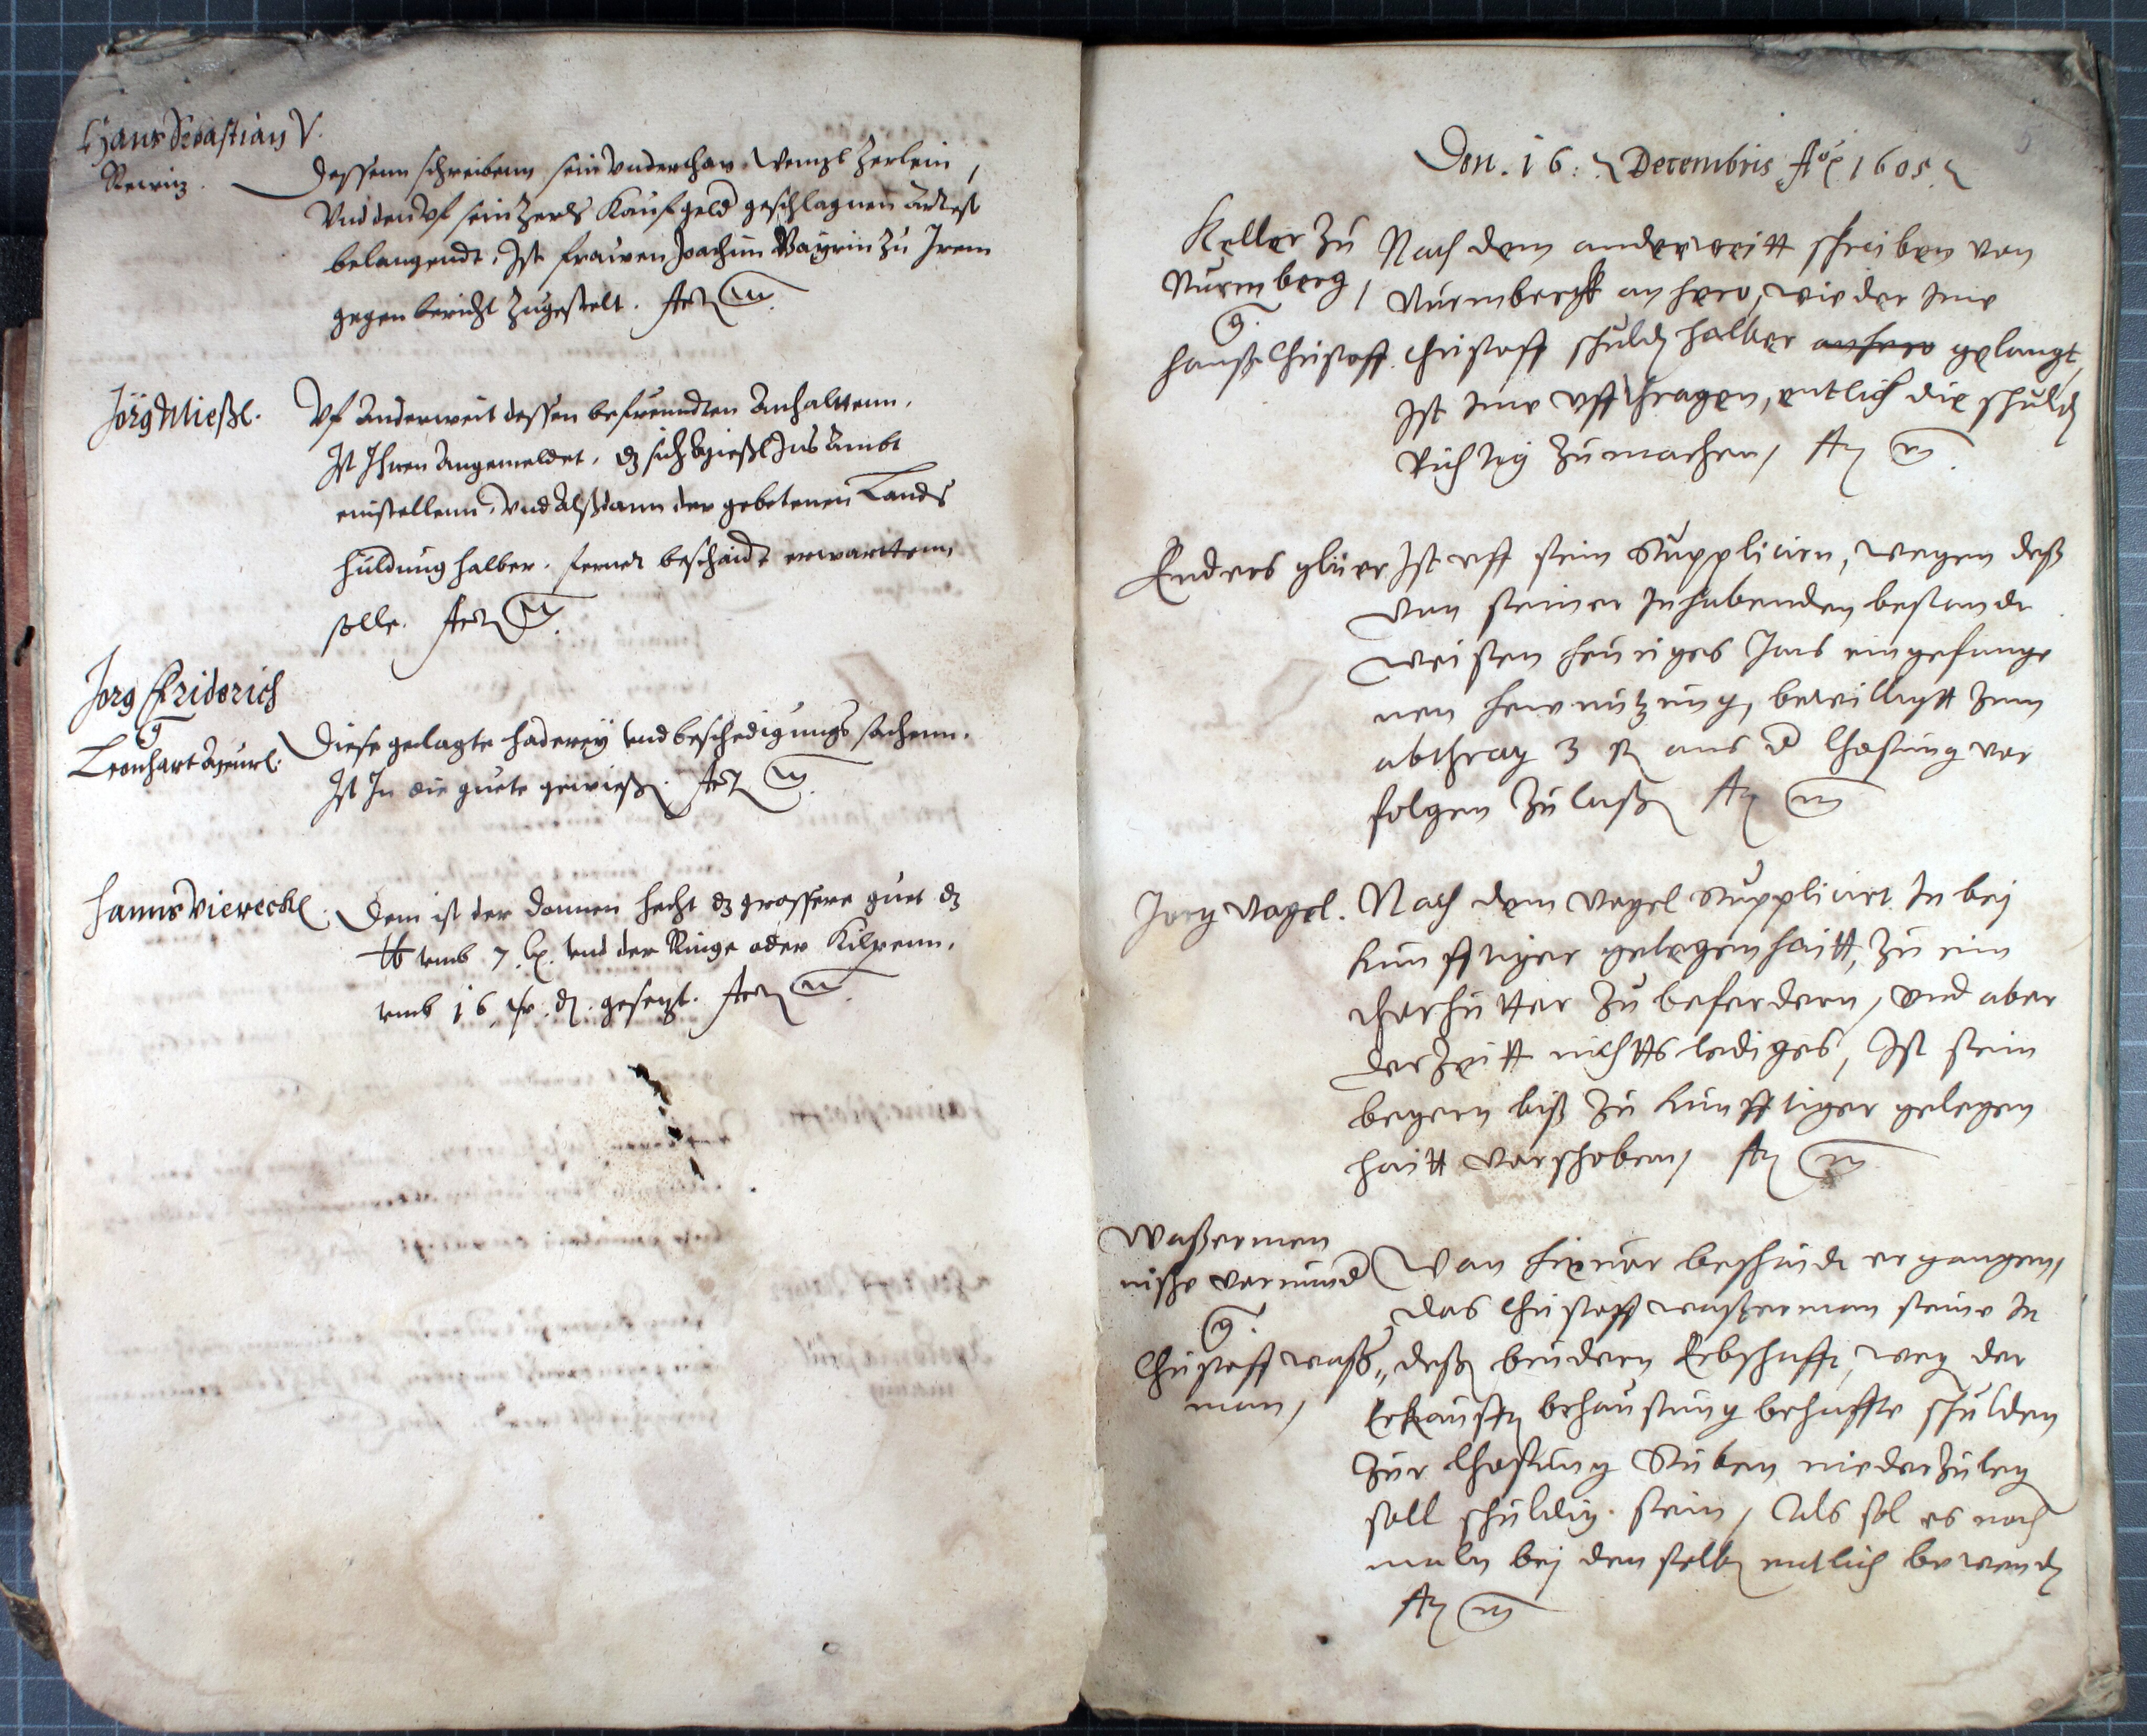 Hans Sebastian V.
Rewitz.
Dessenn schreibenn sein Underthan Wenzl Zerlein,
Und den vf sein Zerls Kaufgeld geschlagnen Arrest
belangendt. Ist frawen Joachim Bayrin zu Irem
gegenbericht zugestelt. Act m.
Jörg Mießl.
Vf Anderweit dessen befreundten Anhalttenn.
Ist Ihnen Angemeldet, dz sich Mießl Ins Ambt
einstellenn, Und Alßdann der gebetenen Lands
huldung halber. ferner beschaidt erwarttenn
solle. Act m.
Jorg Friderich
g
Leonhart
Diese geclagte haderey und beschedigungs sachenn.
Ist In die guete gewießen. Act m.
Hanns Viereckl.
Dem ist der Donnen hecht dz grossere guet dz
lb umb 7 und der Ringe oder Kilpenn.
umb 16 d. gesezt. Act m.
Den. 16: Decembris Ao 1605
Keller zu
Nurmberg /
g.
Hanß Christoff.
Nach dem anderweitt schreiben von
Nurmbergk anhero, wieder Ime
Christoff schuld halber anhero gelangt,
Ist Ime vfftragen, entlich die schuld
Richtig zumachen, Act m.
Enders glüer
Ist vff sein Suppliciren, wegen deß
von seiner Inhabenden bestandt
weisen heuriges Jars eingefange
nen hewnutzung, bewilligtt zum
abthrag 3 fl aus d Losung ver
folgen zulaßen Act m
Jorg Vogel.
Nach dem Vogel Supplicirt In bej
Kunfftiger gelegenhaitt, zu ein
zu befordern, vnd aber
der Zeitt nichtts lediges, Ist sein
begern biß zu kunfftiger gelegen
haitt verschoben, Act m
Waßermen
nische Vormund
g.
Christoff Waßer
man,
Von hieuor beschaidt ergangen,
das Christoff Waßerman seine In
deß brudern Erbschafft, weg der
Erkaufften behausung behaffte schulden
zur Losung Stuben niederzulegen
soll schuldig sein, Als sol es noch
maln bej denselben entlich bewenden
Act m